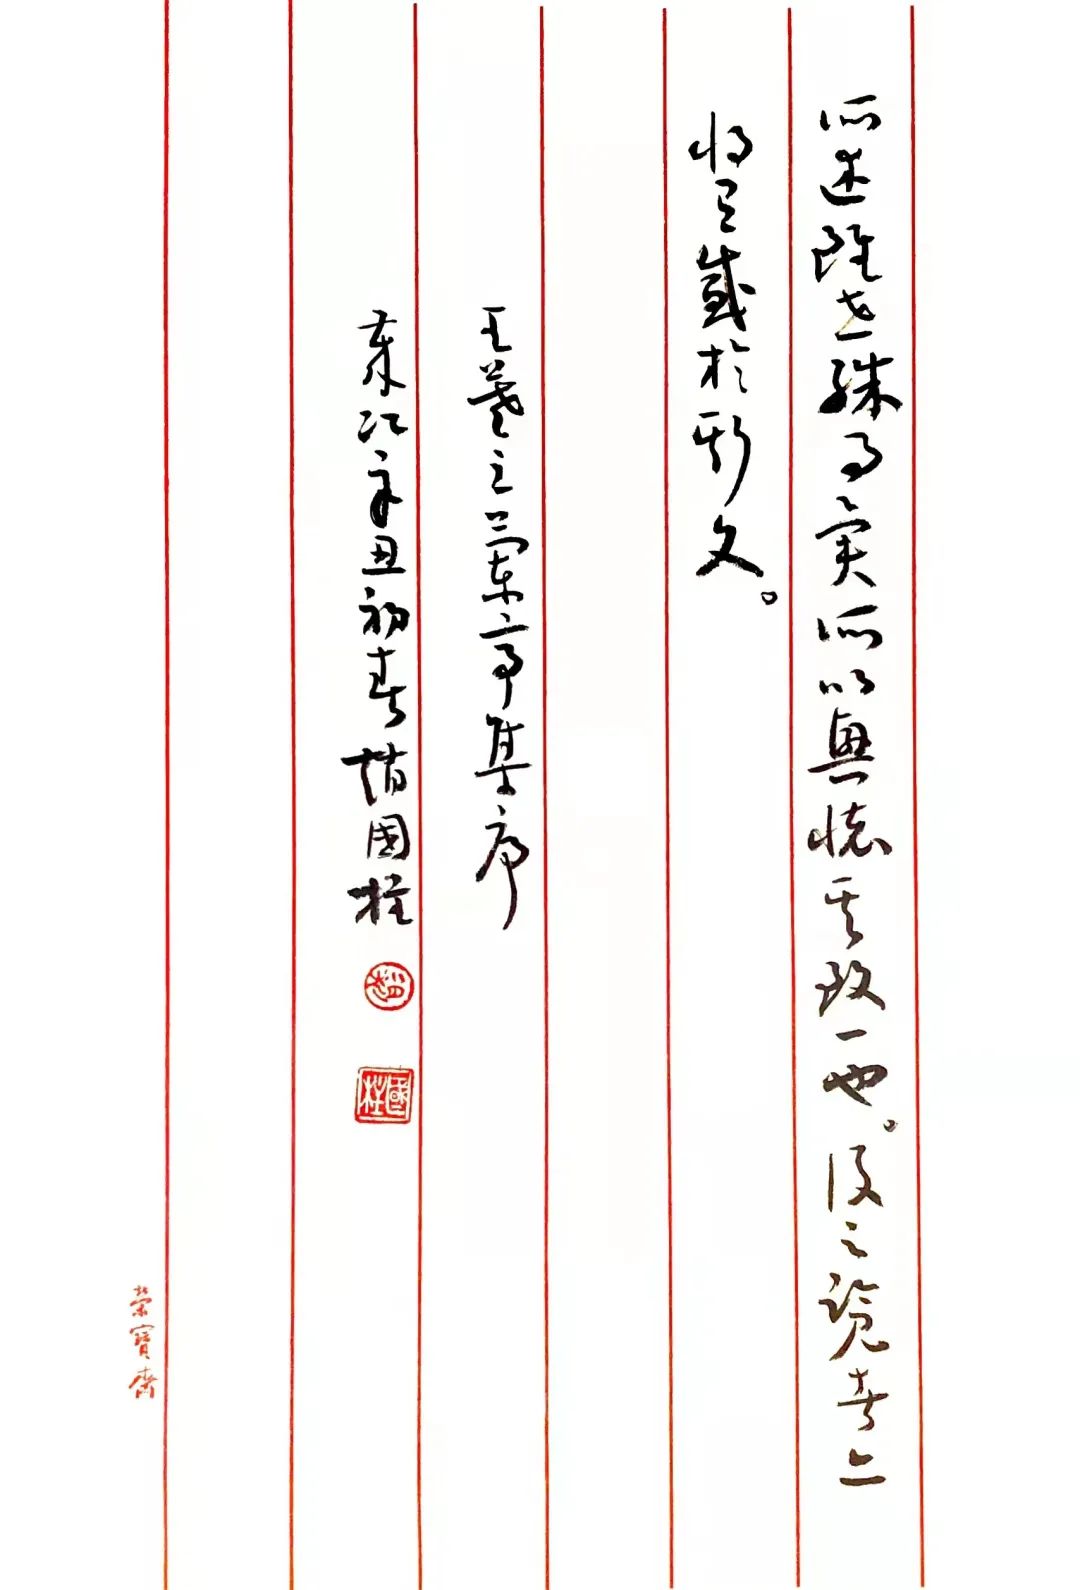 所述雖世殊事異所以興懷其致一也。後之覽者亦
將有感於斯文。
王羲之蘭亭集序
江辛丑初春趙國柱
趙
國柱
榮寶齋